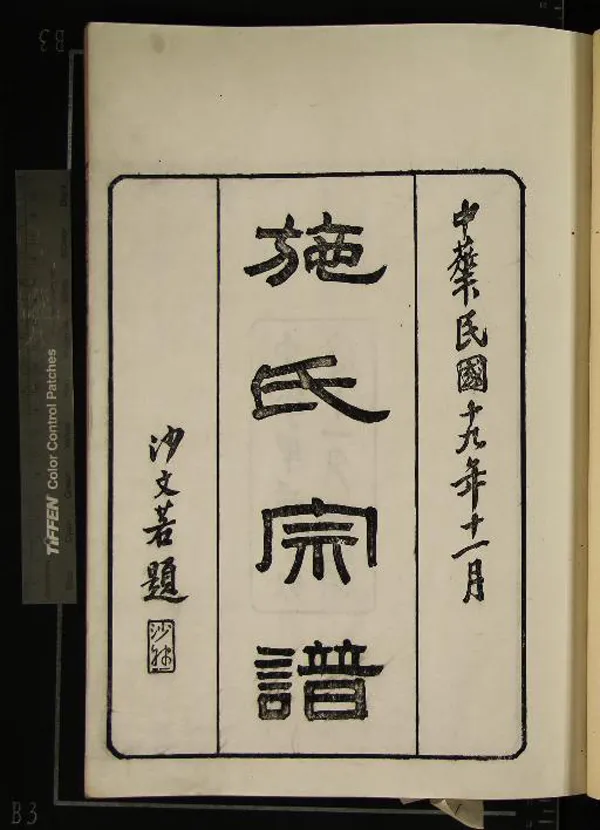 中華民國十九年十一月
施氏宗譜
沙文若題
TIFFEN Color Control Patches
B3
B3